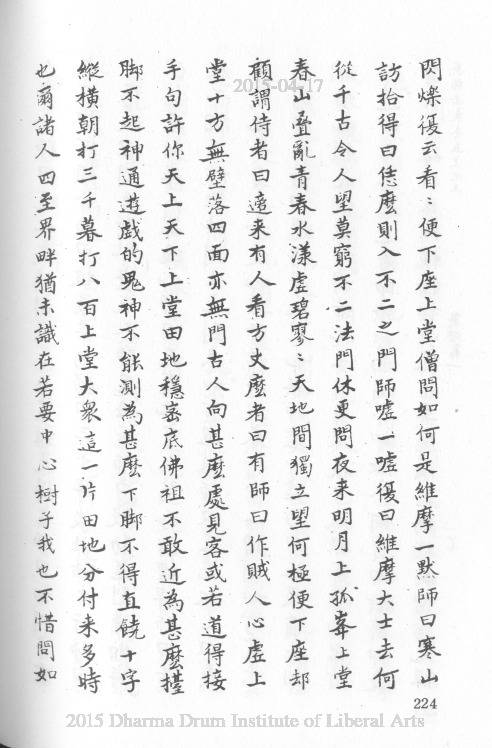 閃爍復云看〻便下座上堂僧問如何是維摩一默師曰寒山
訪拾得曰恁麼則入不二之門師噓一噓復曰維摩大士去何
從千古令人望莫窮不二法門休更問夜來明月上孤峯上堂
春山疊亂青春水漾虛碧寥〻天地間獨立望何極便下座却
顧謂侍者曰適来有人看方丈麼者曰有師曰作賊人心虛上
堂十方無壁落四面亦無門古人向甚麼處見客或若道得接
手句許你天上天下上堂田地穩密底佛祖不敢近為甚麼擡
脚不起神通遊戲的鬼神不能測為甚麼下脚不得直饒十字
縱橫朝打三千暮打八百上堂大衆這一片田地分付来多時
也爾諸人四至界畔猶未識在若要中心樹子我也不惜問如
224
2015-04-17
2015 Dharma Drum Institute of Liberal Arts